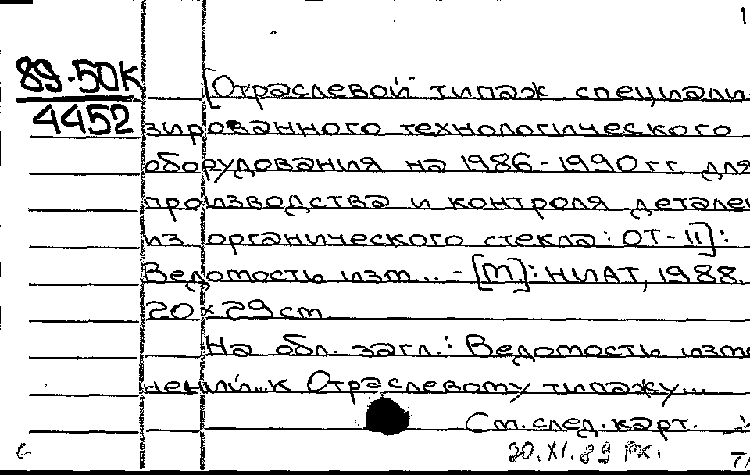 1
89-50К [Отраслевой типаж специали-
4452 зированного технологического
оборудования на 1986-1990 гг. для
производства и контроля деталей
из органического стекла: ОТ-11]:
Ведомость изм... - [М]: НИАТ, 1988.
20×29 см.
На обл. загл.: Ведомость изме
нений... к Отраслевому типажу...
См. след. карт.
20.XI.89